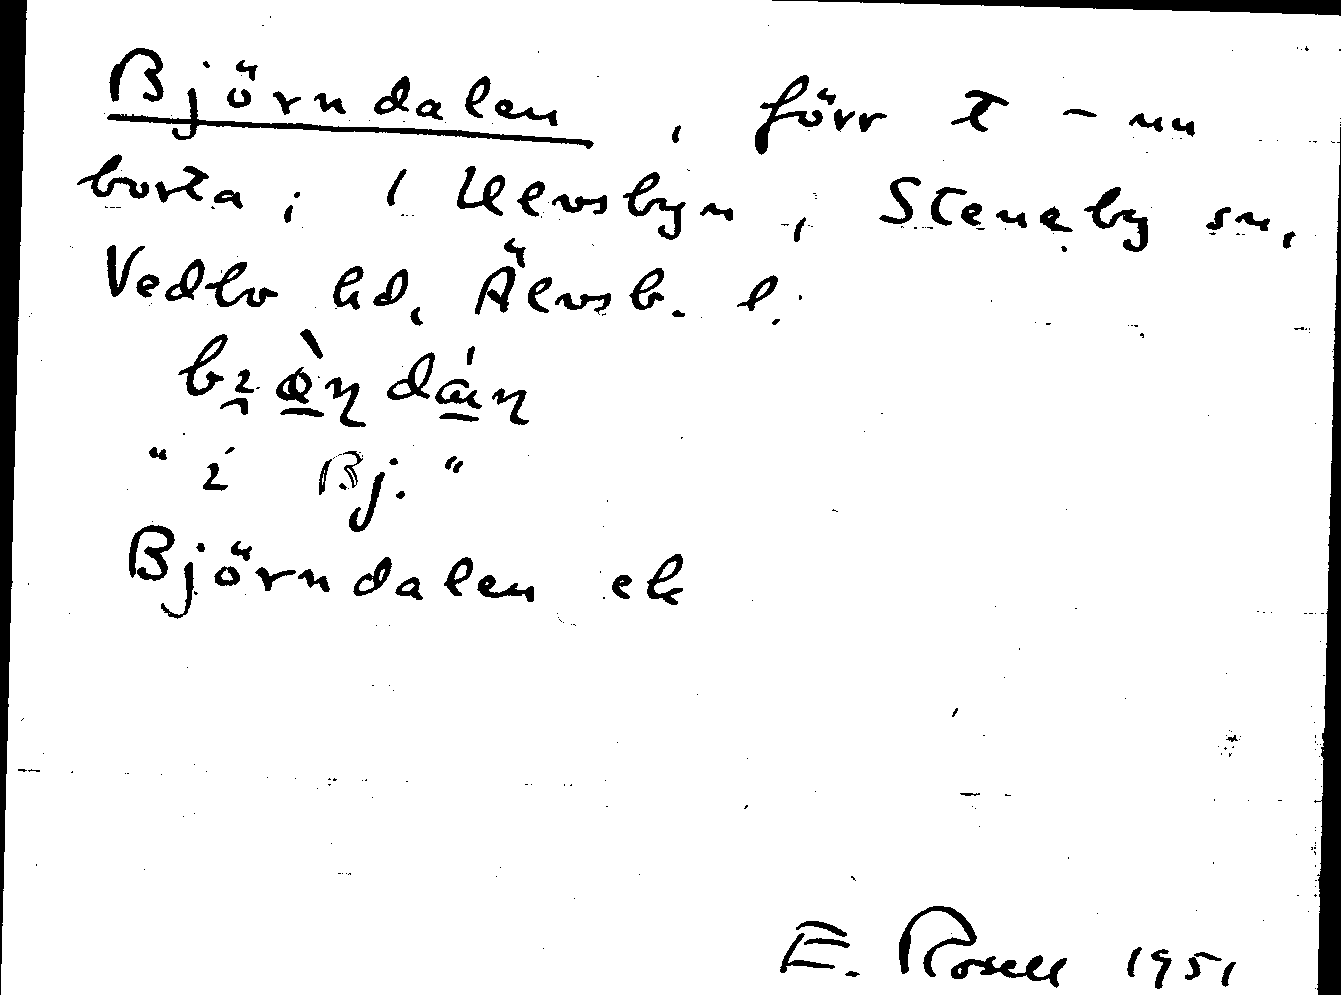 Björndalen, förr t - nu
borta; i Ulvsbyn, Steneby sn,
Vedbo hd, Älvsb. l.
"i Bj."
Björndalen ek
E. Rosell 1951